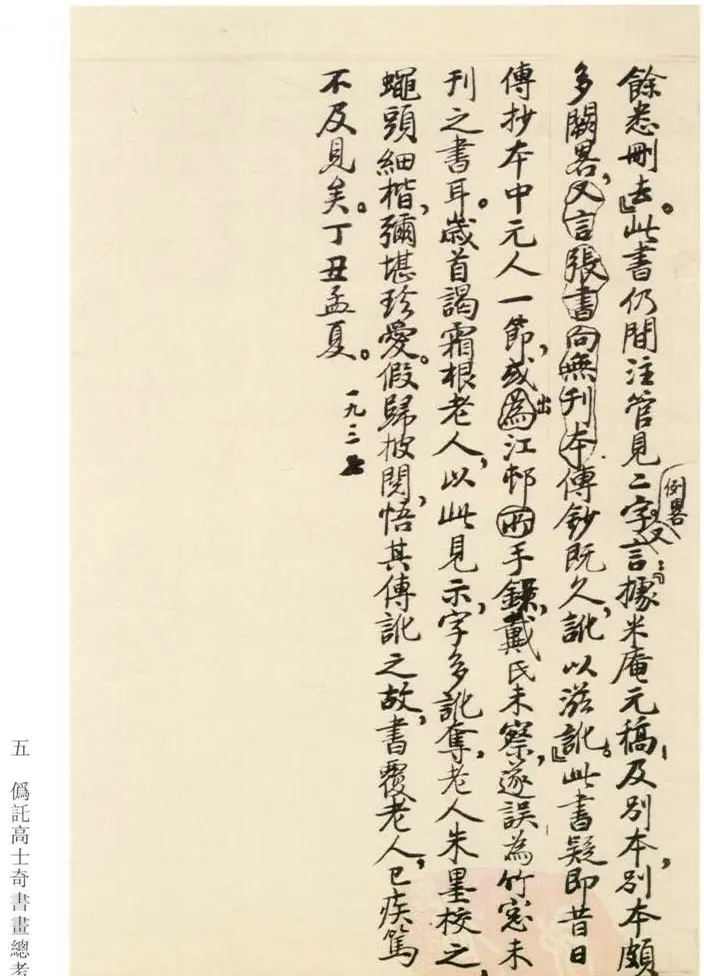 餘悉刪去。』此書仍間注管見二字。例畧又言：『據米庵元稿，及別本，別本頗
多闕畧，又言張書向無刊本傳鈔既久，訛以滋訛。』此書疑即昔日
傳抄本中元人一節，或為出江邨兩手錄，戴氏未察，遂誤為竹窓未
刊之書耳。歲首謁霜根老人，以此見示，字多訛奪，老人朱墨校之，
蠅頭細楷，彌堪珍愛。假歸披閱，悟其傳訛之故，書覆老人，已疾篤
不及見矣。丁丑孟夏。
一九三七
五 僞託高士奇書畫總考